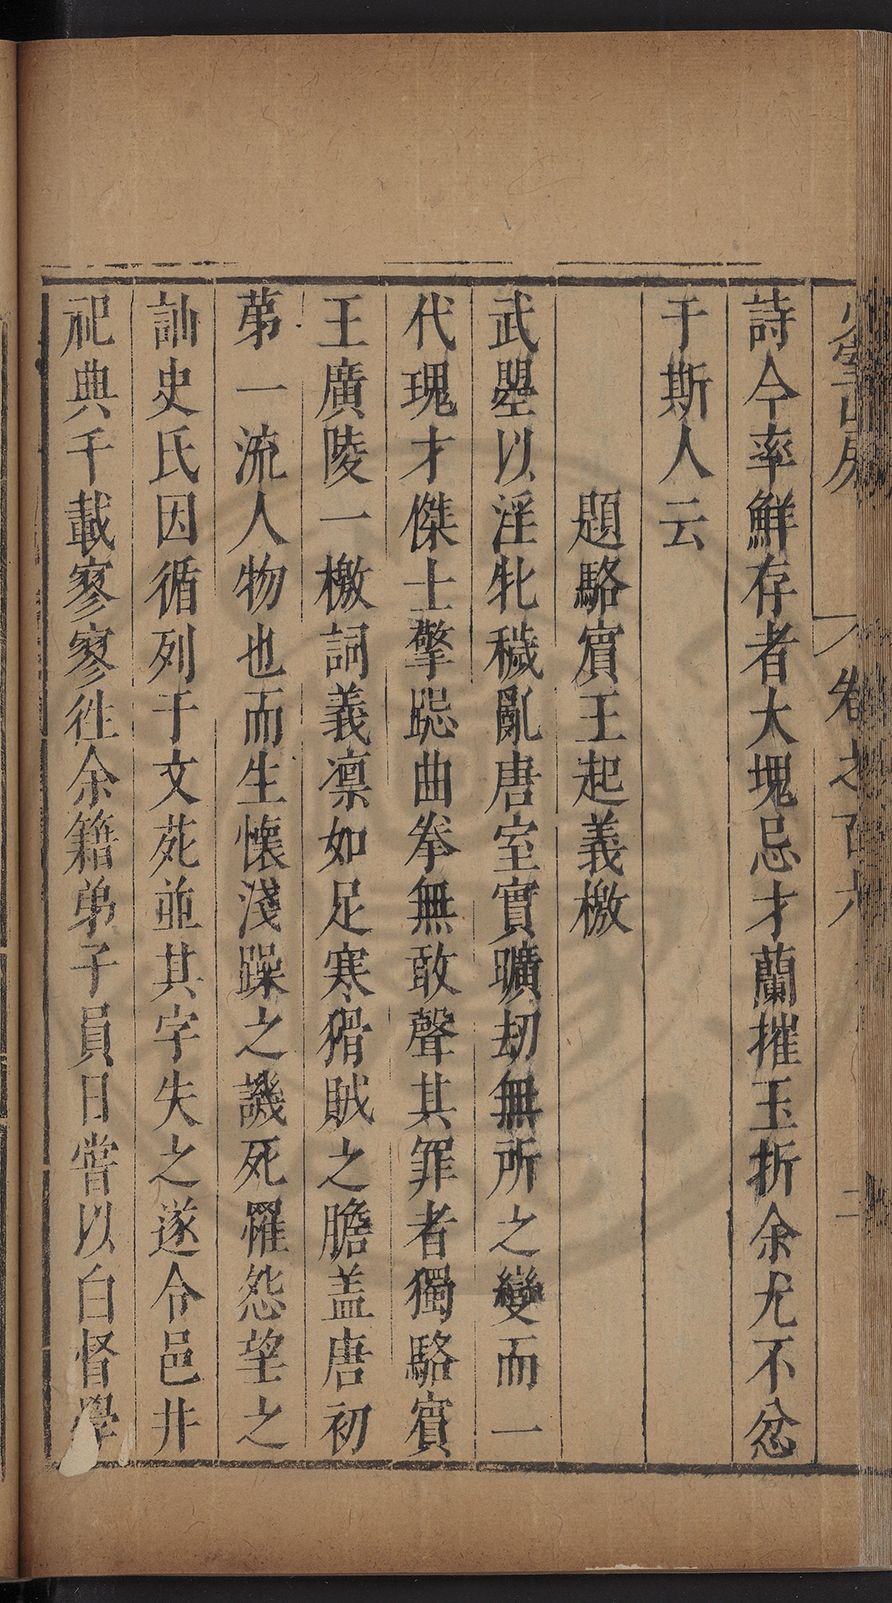 少室山房　卷之百六　二
詩今率鮮存者大塊忌才蘭摧玉折余尤不忿
于斯人云
題駱賓王起義檄
武曌以淫牝穢亂唐室實曠劫無所之變而一
代瑰才傑士擎跽曲拳無敢聲其罪者獨駱賓
王廣陵一檄詞義凛如足寒猾賊之膽盖唐初
第一流人物也而生懷淺躁之譏死罹怨望之
訕史氏因循列于文苑並其字失之遂令邑井
祀典千載寥寥徃余籍弟子員日嘗以白督學